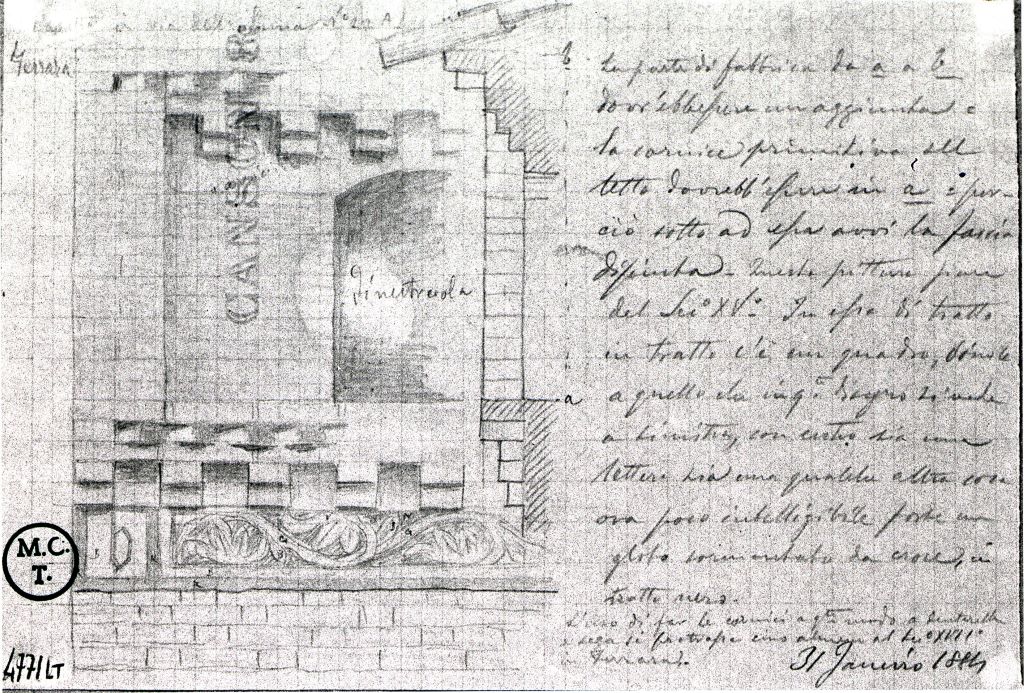 in via
Ferrara
CANSON
Finestruola
b
a
La parte di fabbrica da a a b
dovrebb'essere un aggiunta e
la cornice primitiva del
tetto dovrebb'essere in a e per-
ciò sotto ad essa avvi la fascia
dipinta. Queste pitture pare
del Sec° XV°. In essa di tratto
in tratto c'è un quadro, simile
a quello che in q.to disegno si vede
a sinistra, con entro sia una
lettera sia una qualche altra cosa
ora poco intelligibile forse un
globo sormontato da croce, in
tratto nero.
L'uso di far le cornici a q.to modo a dentarella
e sega si protrae sino almeno al Sec° XVII°
in Ferrara.
31 Janeiro 1884
b
M.C.
T.
4771LT